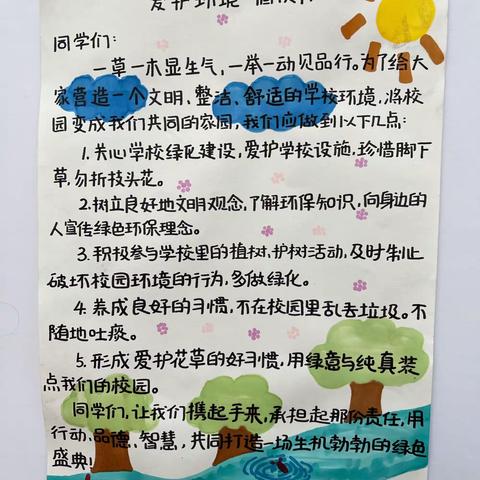 爱护环境
同学们:
一草一木显生气,一举一动见品行。为了给大
家营造一个文明、整洁、舒适的学校环境,将校
园变成我们共同的家园,我们应做到以下几点:
1.关心学校绿化建设,爱护学校设施,珍惜脚下
草,勿折枝头花。
2.树立良好地文明观念,了解环保知识,向身边的
人宣传绿色环保理念。
3.积极参与学校里的植树,护树活动,及时制止
破坏校园环境的行为,多做绿化。
4.养成良好的习惯,不在校园里乱丢垃圾。不
随地吐痰。
5.形成爱护花草的好习惯,用绿意与纯真装
点我们的校园。
同学们,让我们携起手来,承担起那份责任,用
行动、品德、智慧,共同打造一场生机勃勃的绿色
盛典!